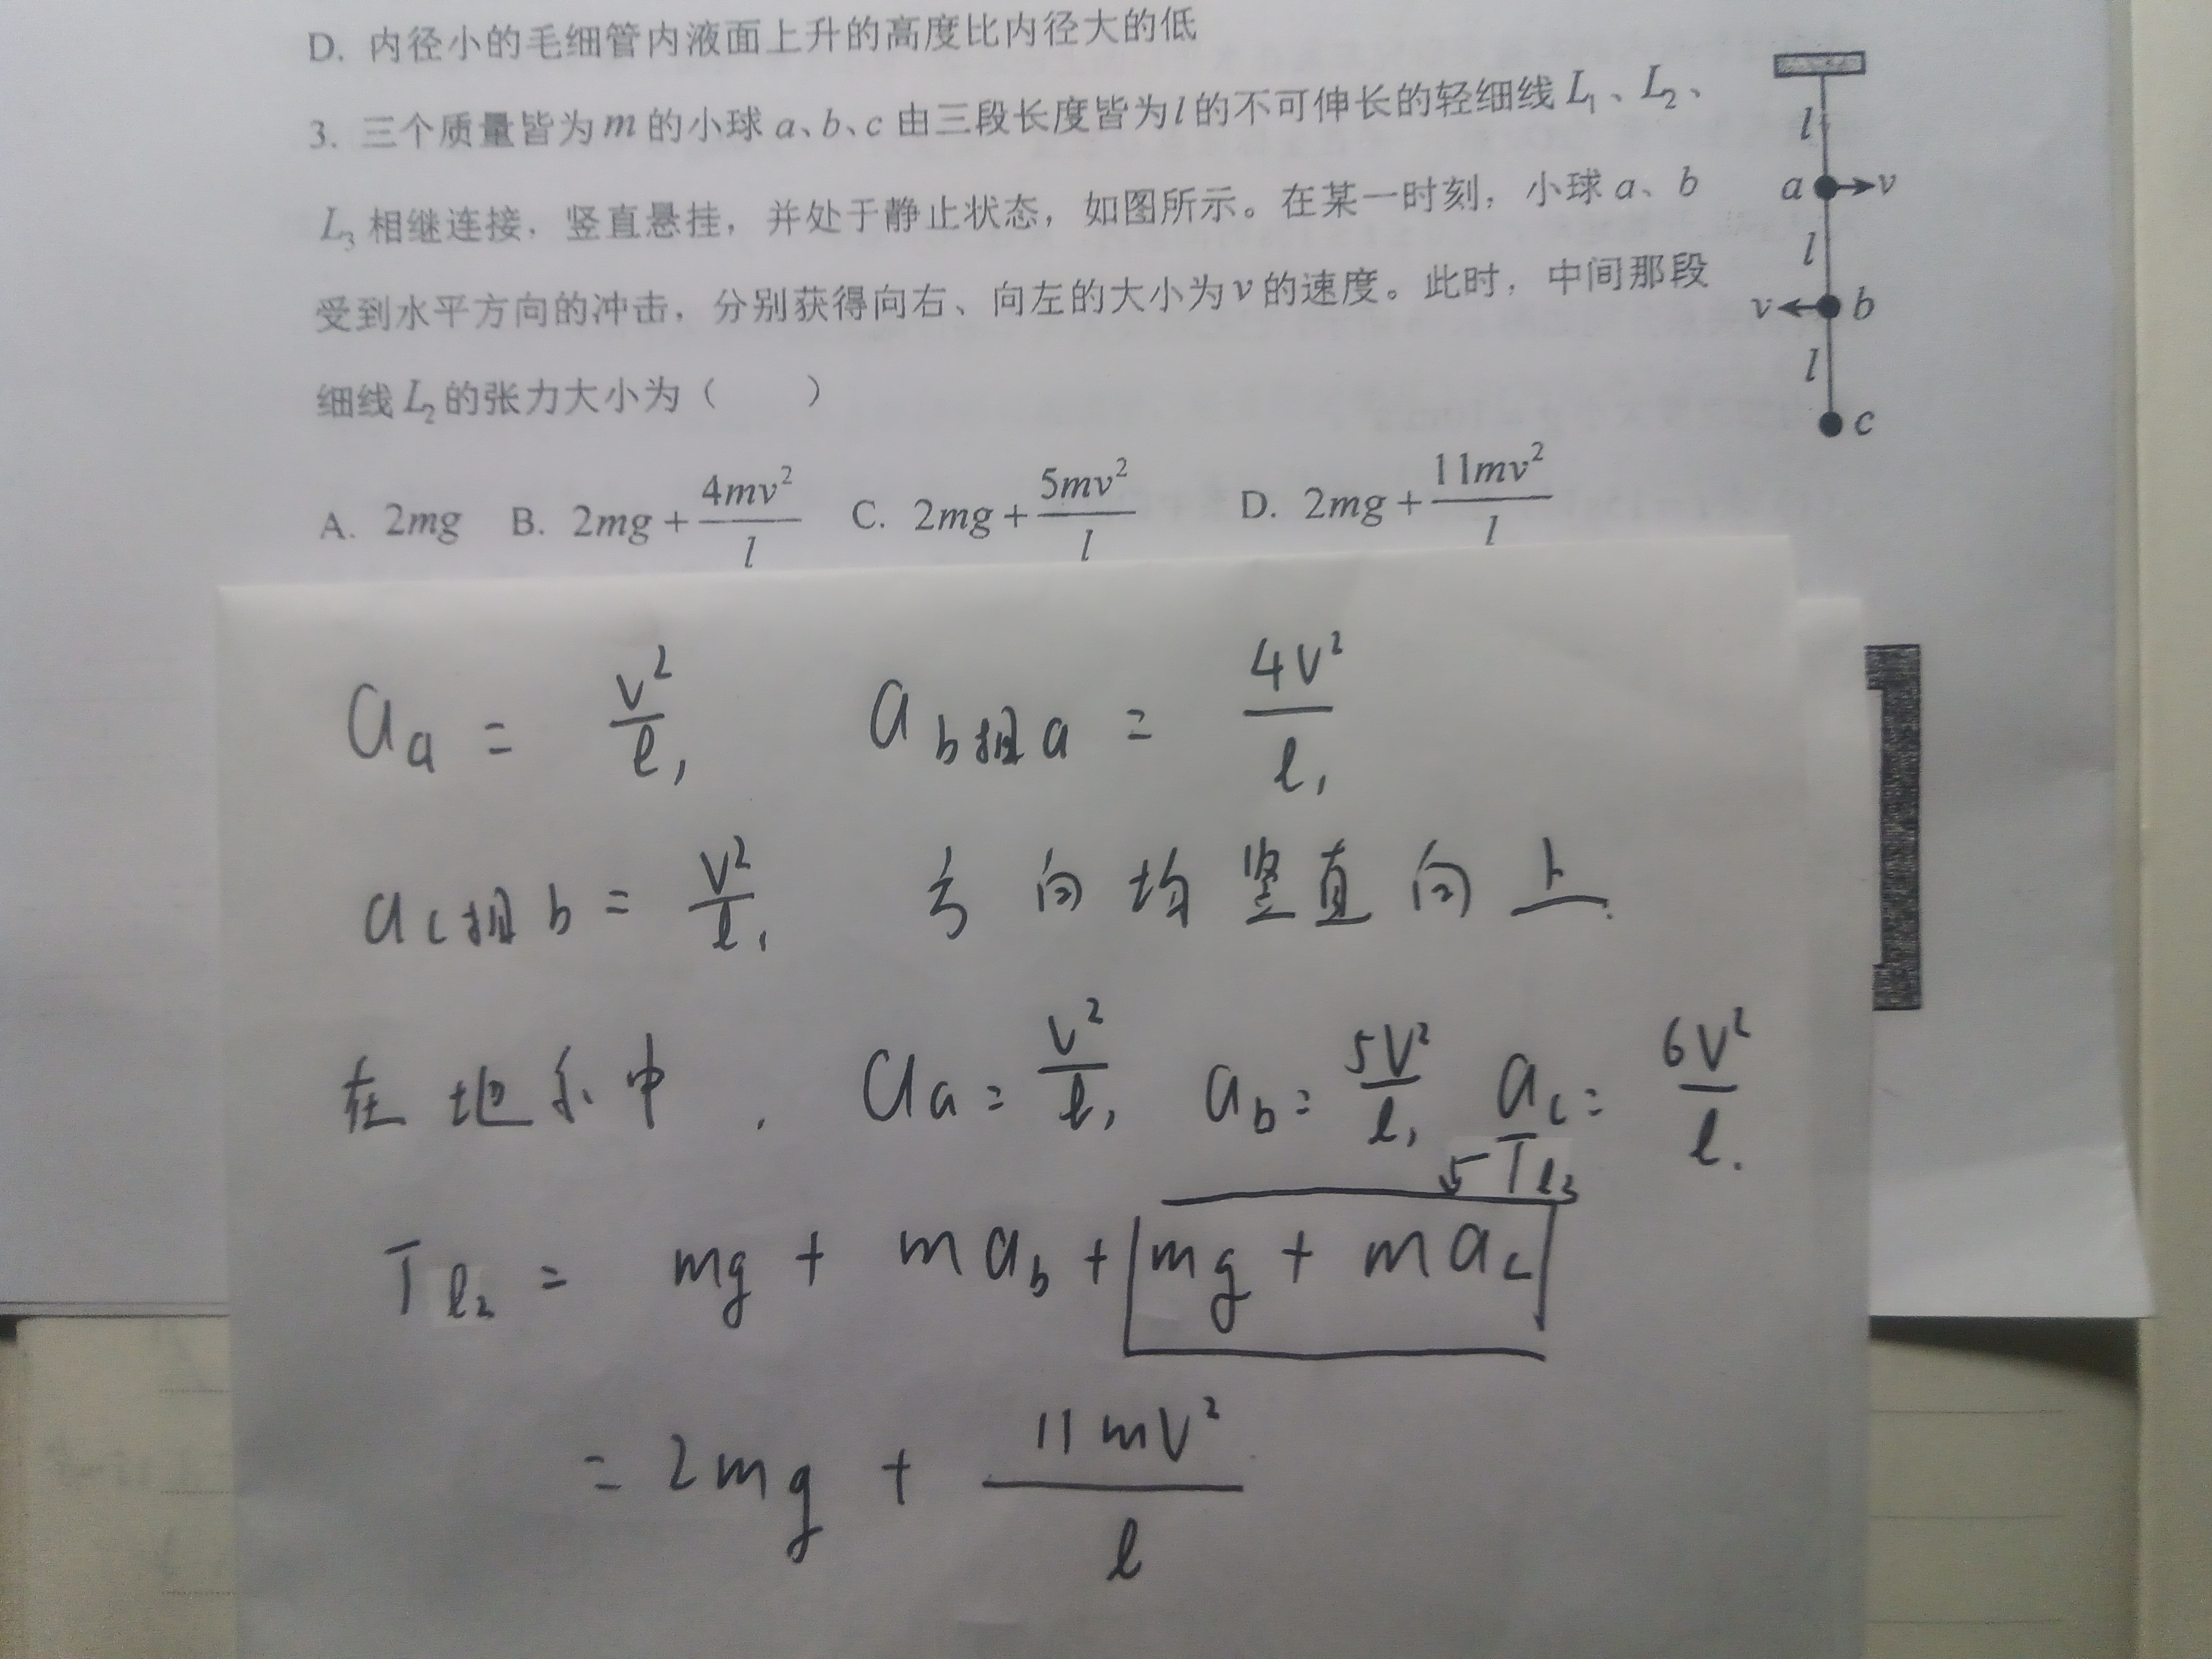 D. 内径小的毛细管内液面上升的高度比内径大的低
3. 三个质量皆为m的小球a、b、c由三段长度皆为l的不可伸长的轻细线L₁、L₂、
L₃相继连接，竖直悬挂，并处于静止状态，如图所示。在某一时刻，小球a、b
受到水平方向的冲击，分别获得向右、向左的大小为v的速度。此时，中间那段
细线L₂的张力大小为（ ）
A. 2mg B. 2mg+4mv²/l C. 2mg+5mv²/l D. 2mg+11mv²/l
l
a v
l
v b
l
c
a_a = v²/l, a_b相a = 4v²/l,
a_c相b = v²/l, 方向均竖直向上.
在地系中, a_a = v²/l, a_b = 5v²/l, a_c = 6v²/l.
T_l₃
T_l₂ = mg + ma_b + mg + ma_c
= 2mg + 11mv²/l